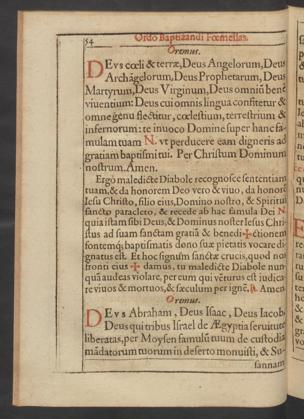 54
Ordo Baptizandi Fœmellas.
Oremus.
DEvs cœli & terræ, Deus Angelorum, Deus
Archãgelorum, Deus Prophetarum, Deus
Martyrum, Deus Virginum, Deus omniũ benè
viuentium: Deus cui omnis lingua confitetur &
omne genu flectitur, cœlestium, terrestrium &
infernorum: te inuoco Domine super hanc fa-
mulam tuam N. vt perducere eam digneris ad
gratiam baptismi tui. Per Christum Dominum
nostrum. Amen.
Ergò maledicte Diabole recognosce sententiam
tuam, & da honorem Deo vero & viuo, da honorẽ
Iesu Christo, filio eius, Domino nostro, & Spiritui
sancto paracleto, & recede ab hac famula Dei N.
quia istam sibi Deus, & Dominus noster Iesus Chri-
stus ad suam sanctam gratiã & benedi✠ctionem
fontemq; baptismatis dono suæ pietatis vocare di-
gnatus est. Et hoc signum sanctæ crucis, quod nos
fronti eius ✠ damus, tu maledicte Diabole nun-
quã audeas violare, per eum qui vẽturus est iudica-
re viuos & mortuos, & sæculum per ignẽ. ℟. Amen.
Oremus.
DEvs Abraham, Deus Isaac, Deus Iacob,
Deus qui tribus Israel de Ægyptia seruitute
liberatas, per Moysen famulũ tuum de custodia
mãdatorum tuorum in deserto monuisti, & Su-
sannam